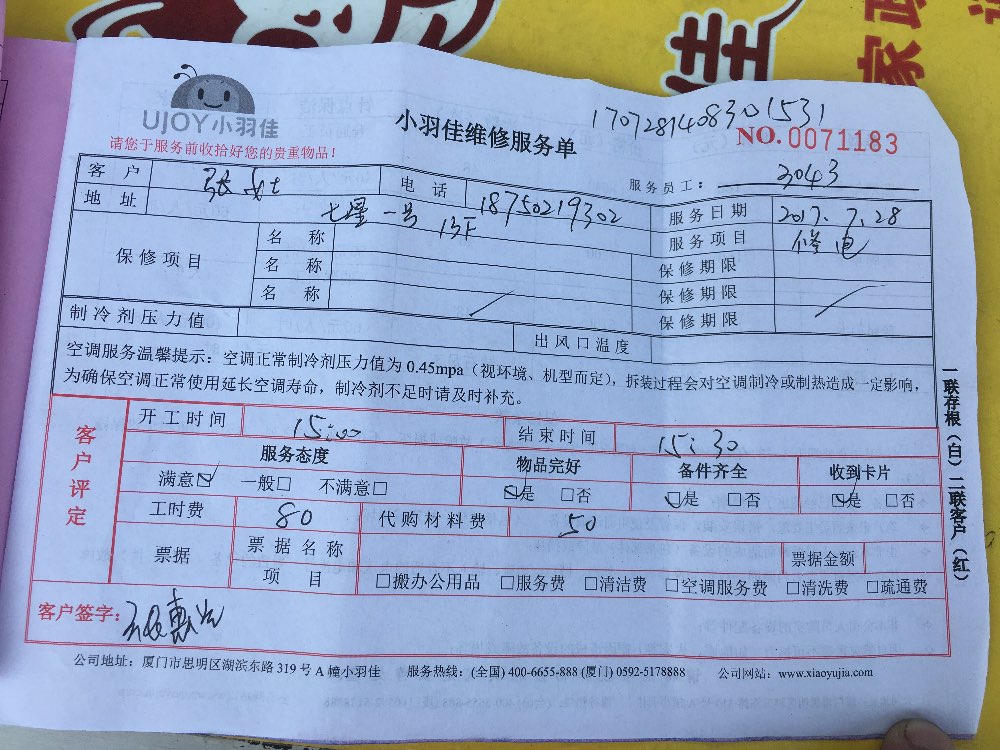 佳
家政
UJOY小羽佳
请您于服务前收拾好您的贵重物品!
小羽佳维修服务单
1707281408301531
NO.0071183
服务员工: 3043
客户 张女士 电话 18750219302 服务日期 2017.7.28
地址 七星一号 13F 服务项目 修电
保修项目 名称 保修期限
名称 保修期限
名称 保修期限
制冷剂压力值 出风口温度
空调服务温馨提示:空调正常制冷剂压力值为0.45mpa(视环境、机型而定),拆装过程会对空调制冷或制热造成一定影响,
为确保空调正常使用延长空调寿命,制冷剂不足时请及时补充。
客户评定
开工时间 15:00 结束时间 15:30
服务态度 物品完好 备件齐全 收到卡片
满意☑ 一般□ 不满意□ ☑是 □否 ☑是 □否 ☑是 □否
工时费 80 代购材料费 50
票据 票据名称 票据金额
项目 □搬办公用品 □服务费 □清洁费 □空调服务费 □清洗费 □疏通费
客户签字:
一联存根(白)二联客户(红)
公司地址:厦门市思明区湖滨东路319号A幢小羽佳 服务热线:(全国) 400-6655-888 (厦门) 0592-5178888 公司网站:www.xiaoyujia.com